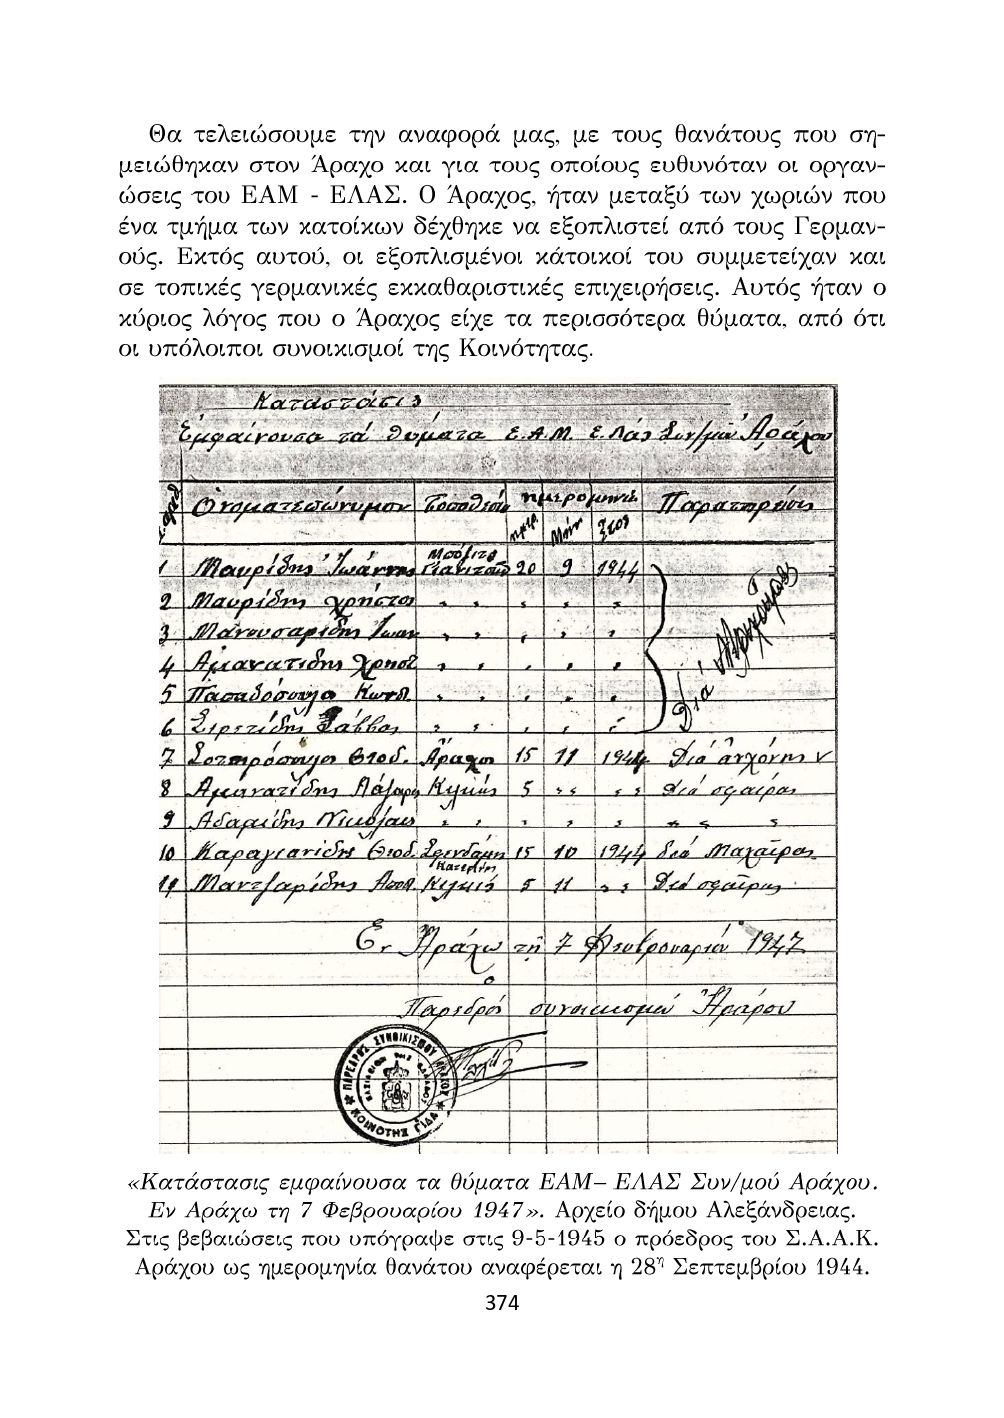 Θα τελειώσουμε την αναφορά μας, με τους θανάτους που ση-
μειώθηκαν στον Άραχο και για τους οποίους ευθυνόταν οι οργαν-
ώσεις του ΕΑΜ - ΕΛΑΣ. Ο Άραχος, ήταν μεταξύ των χωριών που
ένα τμήμα των κατοίκων δέχθηκε να εξοπλιστεί από τους Γερμαν-
ούς. Εκτός αυτού, οι εξοπλισμένοι κάτοικοί του συμμετείχαν και
σε τοπικές γερμανικές εκκαθαριστικές επιχειρήσεις. Αυτός ήταν ο
κύριος λόγος που ο Άραχος είχε τα περισσότερα θύματα, από ότι
οι υπόλοιποι συνοικισμοί της Κοινότητας.
Κατάστασις
Εμφαίνουσα τά θύματα Ε.Α.Μ. Ε.Λάς Συν/μού Αράχου
Ονοματεπώνυμον Τοποθεσία ημερομηνία Παρατηρήσεις
ημερ. Μήν Έτος
1 Μαυρίδης Ιωάννης Γιαννιτσών 20 9 1944
2 Μαυρίδης Χρήστος " " " " "
3 Μανουσαρίδης Ιωαν " " " " "
4 Αμανατίδης Χρηστ " " " " "
5 Παπαδόπουλο Κωνσ. " " " " "
6 Σάββας " " " " "
7 Σωτηρόπουλος Θεοδ. Άραχος 15 11 1944 Διά αγχόνης
8 Αμανατίδης Λάζαρος Κιλκίς 5 " " " " Διά σφαίρας
9 Αδαμίδης Νικόλαος " " " " " " " "
10 Καραγιανίδης Θεοδ. Σφενδάμη Κατερίνης 15 10 1944 διά Μαχαίρας
11 Μαντζαρίδης Αποσ. Κιλκίς 5 11 " " Διά σφαίρας
Εν Αράχω τη 7 Φευβρουαρίου 1947
Ο
Παρεδρός συνοικισμού Αράχου
ΠΑΡΕΔΡΟΣ ΣΥΝΟΙΚΙΣΜΟΥ ΑΡΑΧΟΥ
ΒΑΣΙΛΕΙΟΝ ΤΗΣ ΕΛΛΑΔΟΣ
ΚΟΙΝΟΤΗΣ ΓΙΔΑ
«Κατάστασις εμφαίνουσα τα θύματα ΕΑΜ– ΕΛΑΣ Συν/μού Αράχου.
Εν Αράχω τη 7 Φεβρουαρίου 1947». Αρχείο δήμου Αλεξάνδρειας.
Στις βεβαιώσεις που υπόγραψε στις 9-5-1945 ο πρόεδρος του Σ.Α.Α.Κ.
Αράχου ως ημερομηνία θανάτου αναφέρεται η 28η Σεπτεμβρίου 1944.
374